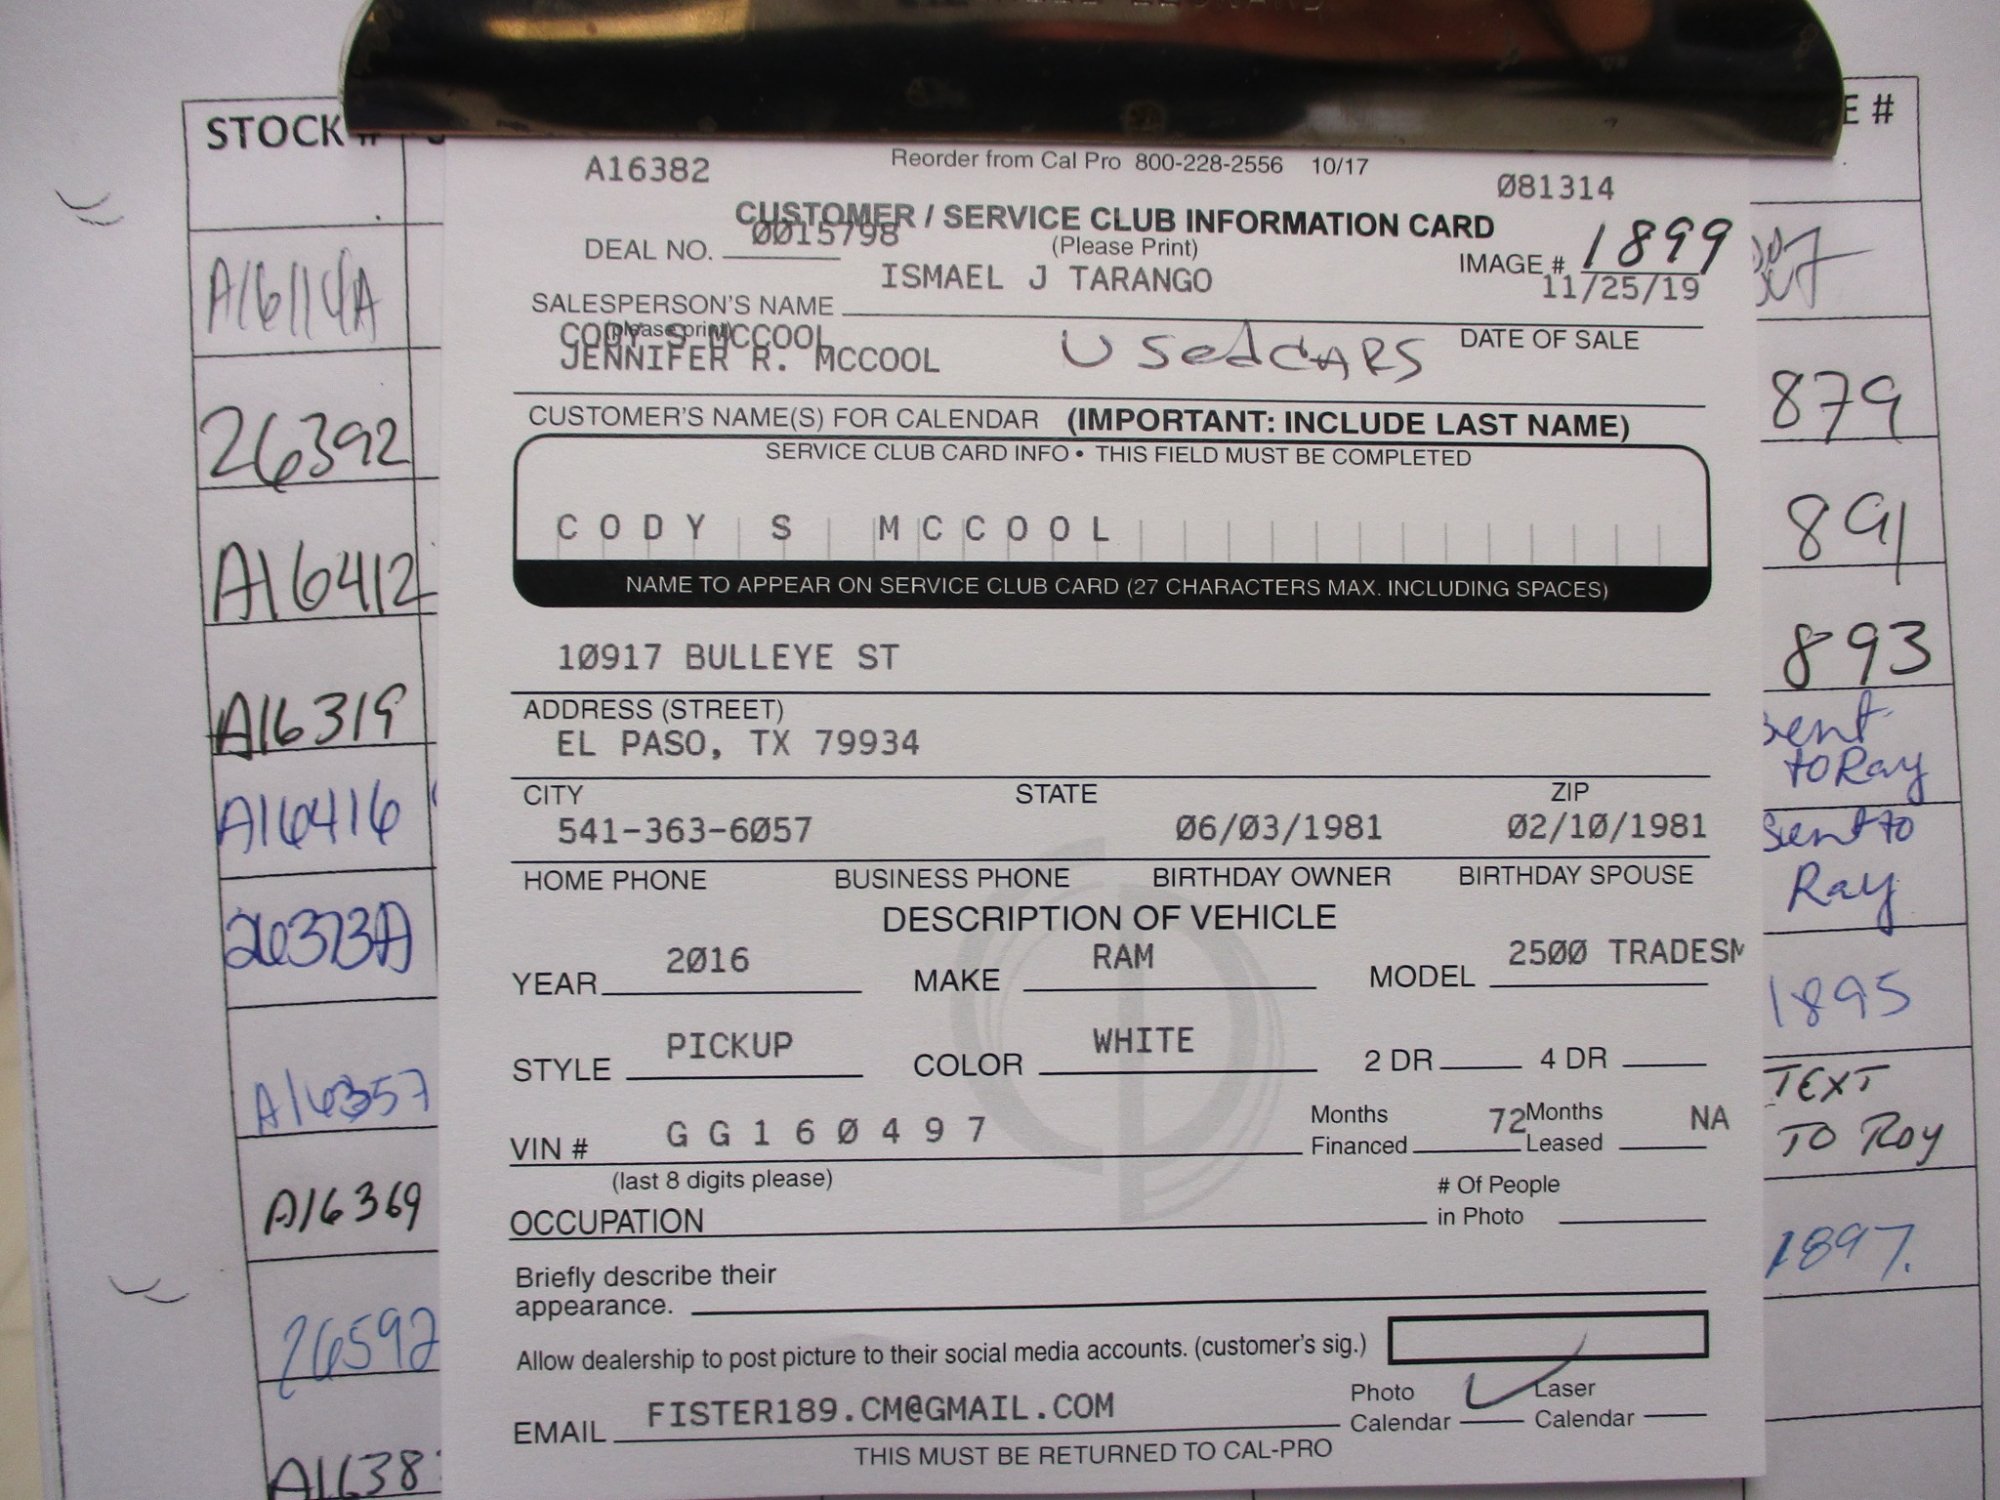 STOCK #
E #
A16382
Reorder from Cal Pro 800-228-2556 10/17
081314
CUSTOMER / SERVICE CLUB INFORMATION CARD
DEAL NO. 0015798
(Please Print)
IMAGE # 1899
ISMAEL J TARANGO
11/25/19
SALESPERSON'S NAME
(please print)
DATE OF SALE
CODY S MCCOOL
JENNIFER R. MCCOOL
USed CARS
CUSTOMER'S NAME(S) FOR CALENDAR (IMPORTANT: INCLUDE LAST NAME)
SERVICE CLUB CARD INFO • THIS FIELD MUST BE COMPLETED
CODY S MCCOOL
NAME TO APPEAR ON SERVICE CLUB CARD (27 CHARACTERS MAX. INCLUDING SPACES)
10917 BULLEYE ST
ADDRESS (STREET)
EL PASO, TX 79934
CITY STATE ZIP
541-363-6057 06/03/1981 02/10/1981
HOME PHONE BUSINESS PHONE BIRTHDAY OWNER BIRTHDAY SPOUSE
DESCRIPTION OF VEHICLE
YEAR 2016 MAKE RAM MODEL 2500 TRADESM
STYLE PICKUP COLOR WHITE 2 DR 4 DR
VIN # GG160497 Months Financed 72 Months Leased NA
(last 8 digits please)
OCCUPATION # Of People in Photo
Briefly describe their
appearance.
Allow dealership to post picture to their social media accounts. (customer's sig.)
EMAIL FISTER189.CM@GMAIL.COM Photo Calendar Laser Calendar
THIS MUST BE RETURNED TO CAL-PRO
A16114A
26392
879
A16412
891
A16319
893
A16416
sent
to Ray
26373A
Sent to
Ray
A16357
1895
A16369
TEXT
TO Roy
26592
1897.
A1638